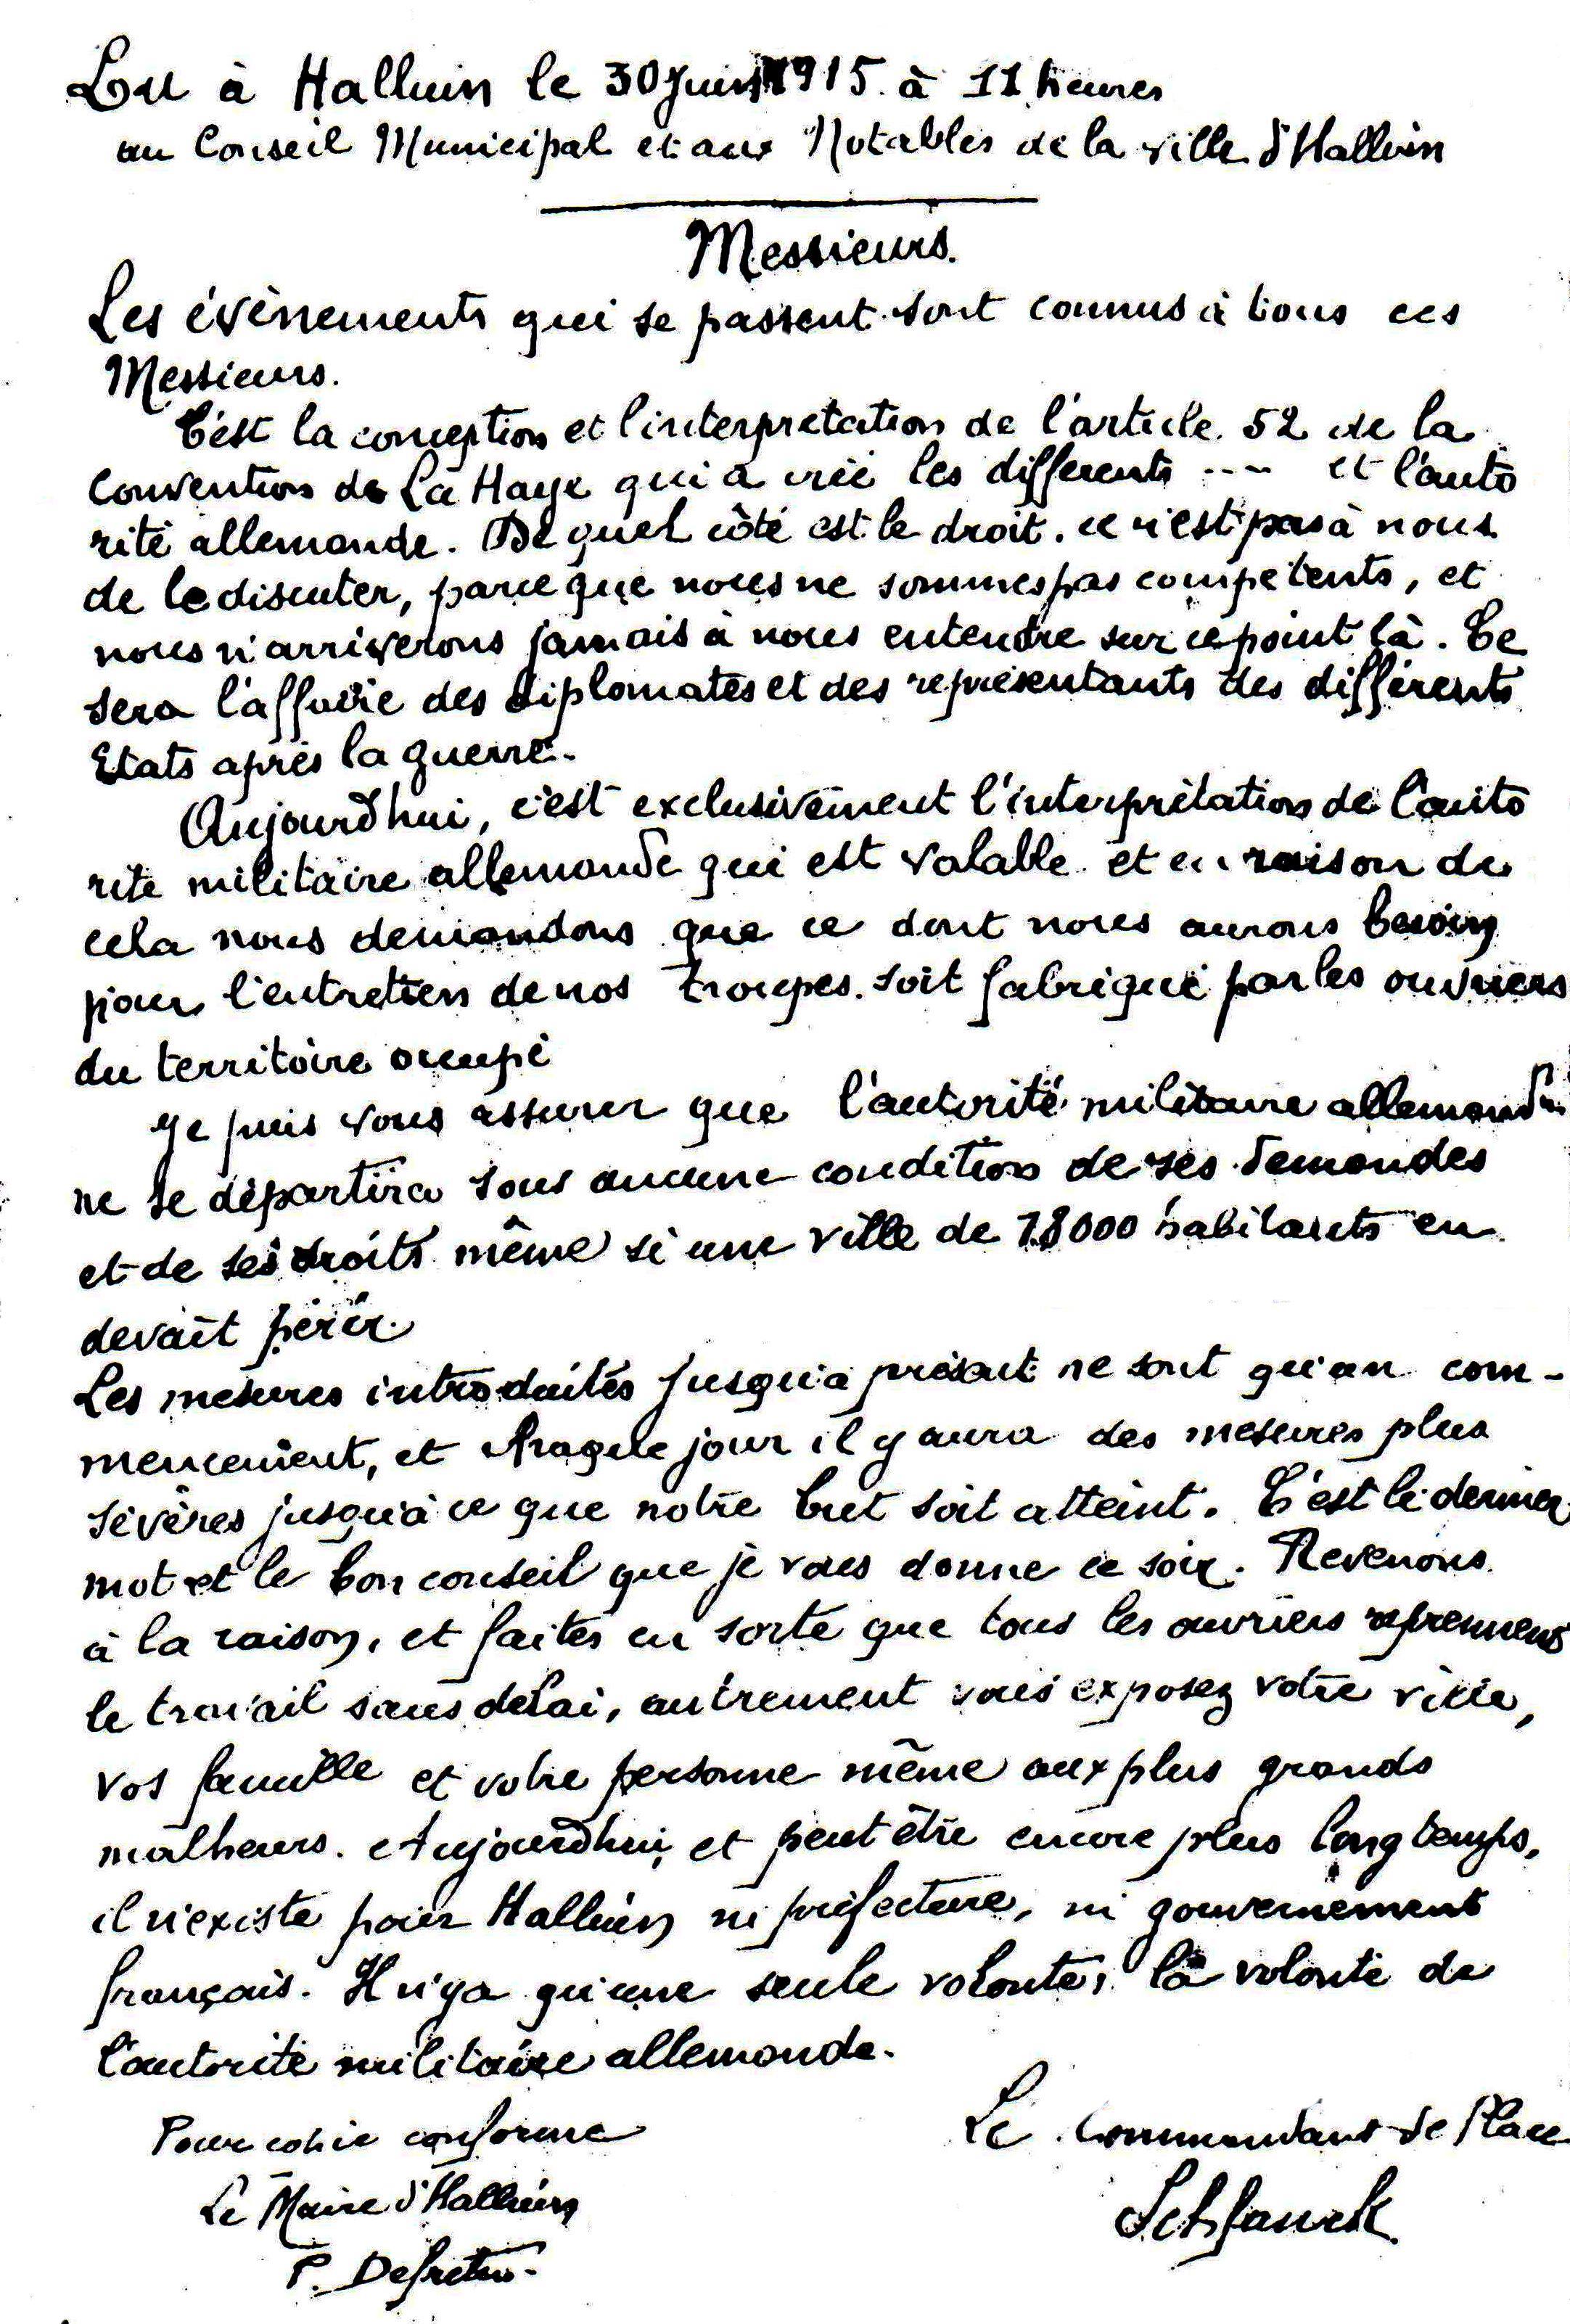 Lu à Halluin le 30 Juin 1915 à 11 heures
au Conseil Municipal et aux Notables de la ville d'Halluin
Messieurs.
Les évènements qui se passent sont connus à tous ces
Messieurs.
C'est la conception et l'interpretation de l'article 52 de la
convention de La Haye qui a créé les differents ---- et l'auto
rité allemande. De quel côté est le droit, ce n'est pas à nous
de le discuter, parce que nous ne sommes pas compétents, et
nous n'arriverons jamais à nous entendre sur ce point là. Ce
sera l'affaire des diplomates et des représentants des différents
Etats après la guerre.
Aujourd'hui, c'est exclusivement l'interprétation de l'auto
rité militaire allemande qui est valable et en raison de
cela nous demandons que ce dont nous aurons besoin
pour l'entretien de nos troupes soit fabriqué par les ouvriers
du territoire occupé
Je puis vous assurer que l'autorité militaire allemande
ne se départira sous aucune condition de ses demandes
et de ses droits même si une ville de 18000 habitants en
devait périr.
Les mesures introduites jusqu'à présent ne sont qu'un com-
mencement, et chaque jour il y aura des mesures plus
sévères jusqu'à ce que notre but soit atteint. C'est le dernier
mot et le bon conseil que je vous donne ce soir. Revenons
à la raison, et faites en sorte que tous les ouvriers reprennent
le travail sans délai, autrement vous exposez votre ville,
vos famille et votre personne même aux plus grands
malheurs. Aujourd'hui, et peut être encore plus longtemps,
il n'existe pour Halluin ni préfecture, ni gouvernement
français. Il n'y a qu'une seule volonté, la volonté de
l'autorité militaire allemande.
Pour copie conforme
Le Commandant de Place
Le Maire d'Halluin
Schranck
P. Defretin